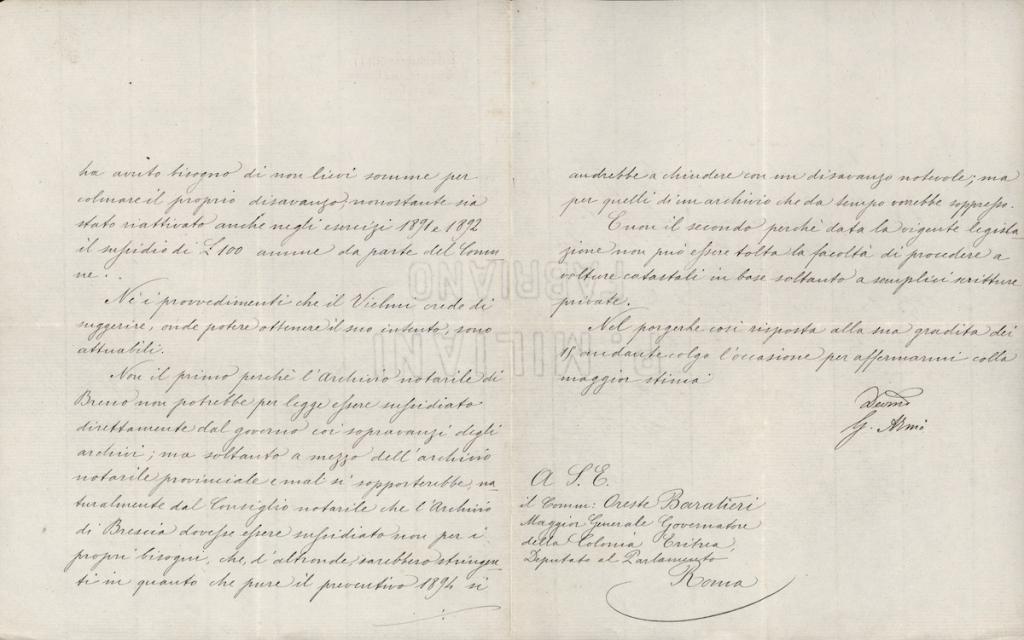 ha avuto bisogno di non lievi somme per
colmare il proprio disavanzo, nonostante sia
stato riattivato anche negli esercizi 1891 e 1892
il sussidio di £ 100 annue da parte del Comu
ne.
Nè i provvedimenti che il Vielmi crede di
suggerire, onde potere ottenere il suo intento, sono
attuabili.
Non il primo perchè l'Archivio notarile di
Breno non potrebbe per legge essere sussidiato
direttamente dal governo coi sopravanzi degli
archivi; ma soltanto a mezzo dell'archivio
notarile provinciale e mal si sopporterebbe, na
turalmente dal Consiglio notarile che l'Archivio
di Brescia dovesse essere sussidiato non per i
propri bisogni, che, d'altronde, sarebbero stringen
ti in quanto che pure il preventivo 1894 si
andrebbe a chiudere con un disavanzo notevole; ma
per quelli di un archivio che da tempo vorrebbe soppresso.
E non il secondo perchè data la vigente legisla
zione non può essere tolta la facoltà di procedere a
volture catastali in base soltanto a semplici scritture
private.
Nel porgerle così risposta alla sua gradita dei
15 andante colgo l'occasione per affermarmi colla
maggior stima
G.
A S. E.
il Comm: Oreste Baratieri
Maggior Generale Governatore
della Colonia Eritrea,
Deputato al Parlamento
Roma
P. MILIANI
FABRIANO